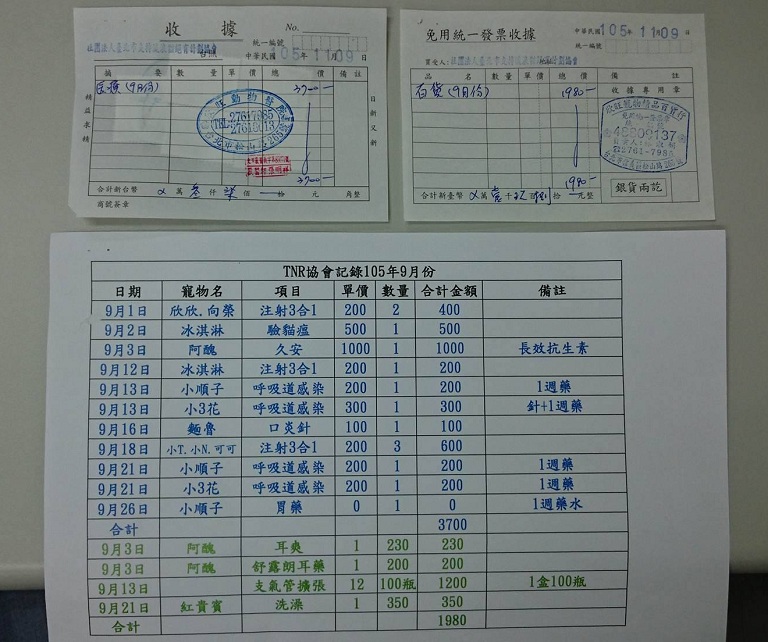 收據 No.
統一編號
台照 中華民國 105年11月09日
摘要 數量 單價 總價 備註
醫療(9月份) 3700-
動物醫院
TEL:27617985
台北市松山路265
3700-
合計新台幣 萬 叁仟 柒佰 拾 元 角整
商號簽章
精益求精
日新又新
免用統一發票收據 中華民國 105年11月09日
統一編號
買受人:
品名 數量 單價 總價 備註
百貨(9月份) 1980- 收據專用章
欣旺寵物精品百貨行
統一編號
48809137
1980-
銀貨兩訖
合計新臺幣 萬 壹千 玖百 捌拾 元整
TNR協會記錄105年9月份
日期 寵物名 項目 單價 數量 合計金額 備註
9月1日 欣欣.向榮 注射3合1 200 2 400
9月2日 冰淇淋 驗貓瘟 500 1 500
9月3日 阿醜 久安 1000 1 1000 長效抗生素
9月12日 冰淇淋 注射3合1 200 1 200
9月13日 小順子 呼吸道感染 200 1 200 1週藥
9月13日 小3花 呼吸道感染 300 1 300 針+1週藥
9月16日 麵魯 口炎針 100 1 100
9月18日 小T.小N.可可 注射3合1 200 3 600
9月21日 小順子 呼吸道感染 200 1 200 1週藥
9月21日 小3花 呼吸道感染 200 1 200 1週藥
9月26日 小順子 胃藥 0 1 0 1週藥水
合計 3700
9月3日 阿醜 耳爽 1 230 230
9月3日 阿醜 舒露朗耳藥 1 200 200
9月13日 支氣管擴張 12 100瓶 1200 1盒100瓶
9月21日 紅貴賓 洗澡 1 350 350
合計 1980